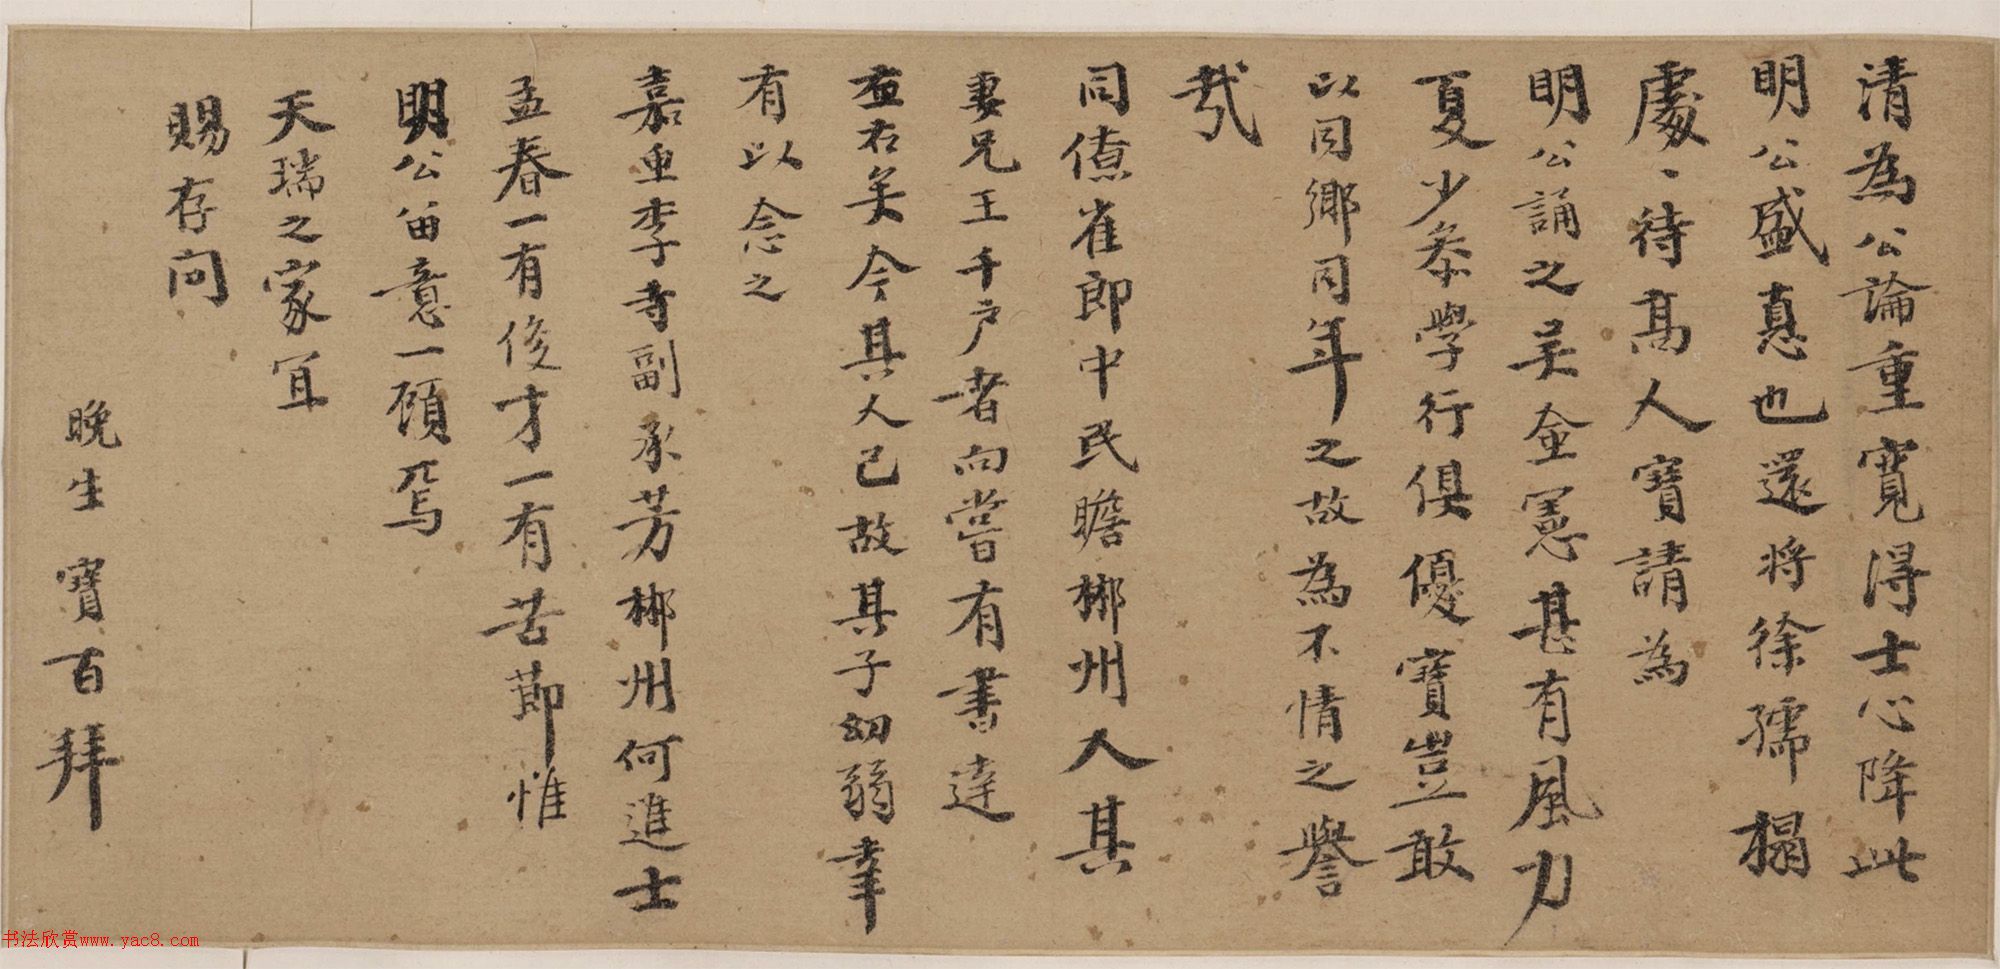 清為公論重寬得士心降此
明公盛惪也還將徐孺榻
處〻待髙人寶請為
明公誦之吴僉憲甚有風力
夏少叅學行俱優寶豈敢
以同鄉同年之故為不情之譽
㢤
同僚崔郎中民瞻郴州人其
妻兄王千户者向嘗有書達
左右矣今其人已故其子幼弱幸
有以念之
嘉重李寺副承芳郴州何進士
孟春一有俊才一有苦節惟
明公留意一顧焉
天瑞之家冝
賜存问
晚生寶百拜
书法欣赏www.yac8.com